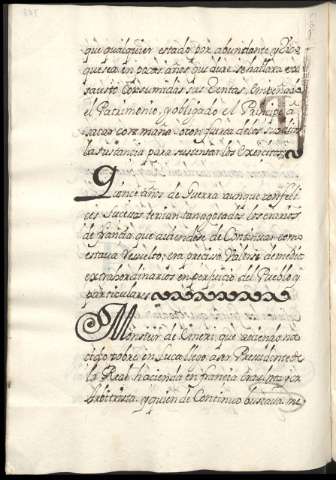 que qualquier estado por abundante, y
que sea en pocos años que dure se hallara ex
hausto consumidas sus Rentas, empeñado
el Patrimonio, y obligado el Principe a
sacar con mano, o con fuerza de los
la sustancia para sustentar los Exercitos
Quince años de Guerra aunque con feli
ces sucesos tenian tan agotados los erarios
de francia que auiendose de Continuar como
estaua resuelto, era preciso Valerse de medios
extrahordinarios en perjuicio del Pueblo, y
particulares
Monsieur de Emeri, que
pobre en Luca llego a ser Presidente de
la Real hacienda en francia era
Arbitrista, y quien de Continuo buscaua me